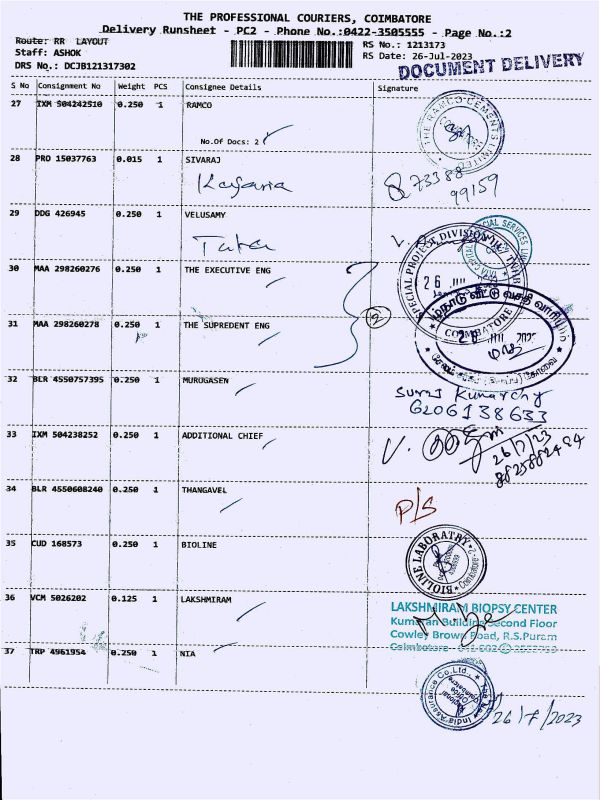 THE PROFESSIONAL COURIERS, COIMBATORE
Delivery Runsheet - PC2 - Phone No.:0422-3505555 - Page No.:2
Route: RR LAYOUT
RS No.: 1213173
Staff: ASHOK
RS Date: 26-Jul-2023
DRS No.: DCJB121317302
DOCUMENT DELIVERY
S No Consignment No Weight PCS Consignee Details Signature
27 IXM 504242510 0.250 1 RAMCO
No.Of Docs: 2
THE RAMCO CEMENTS LIMITED
28 PRO 15037763 0.015 1 SIVARAJ
73388
99159
29 DDG 426945 0.250 1 VELUSAMY
Tata
SPECIAL PROJECT DIVISION
COIMBATORE
30 MAA 298260276 0.250 1 THE EXECUTIVE ENG
2
31 MAA 298260278 0.250 1 THE SUPREDENT ENG
32 BLR 4550757395 0.250 1 MURUGASEN
G206138633
33 IXM 504238252 0.250 1 ADDITIONAL CHIEF
26/7/23
8825882484
34 BLR 4550608240 0.250 1 THANGAVEL
P/S
35 CUD 168573 0.250 1 BIOLINE
BIOLINE LABORATRY
36 VCM 5026202 0.125 1 LAKSHMIRAM
LAKSHMIRAM BIOPSY CENTER
Kumaran Building Second Floor
Cowley Brown Road, R.S.Puram
37 TRP 4961954 0.250 1 NIA
The New India Assurance Co.Ltd.,
26/7/2023